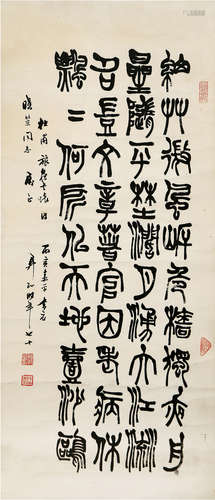 細艸微風岸危檣獨夜舟
星隨平埜闊月湧大江流
名豈文章著官因老病休
飄二何所似天地壹沙鷗
杜甫旅夜書懷詩
同志屬正
年七十